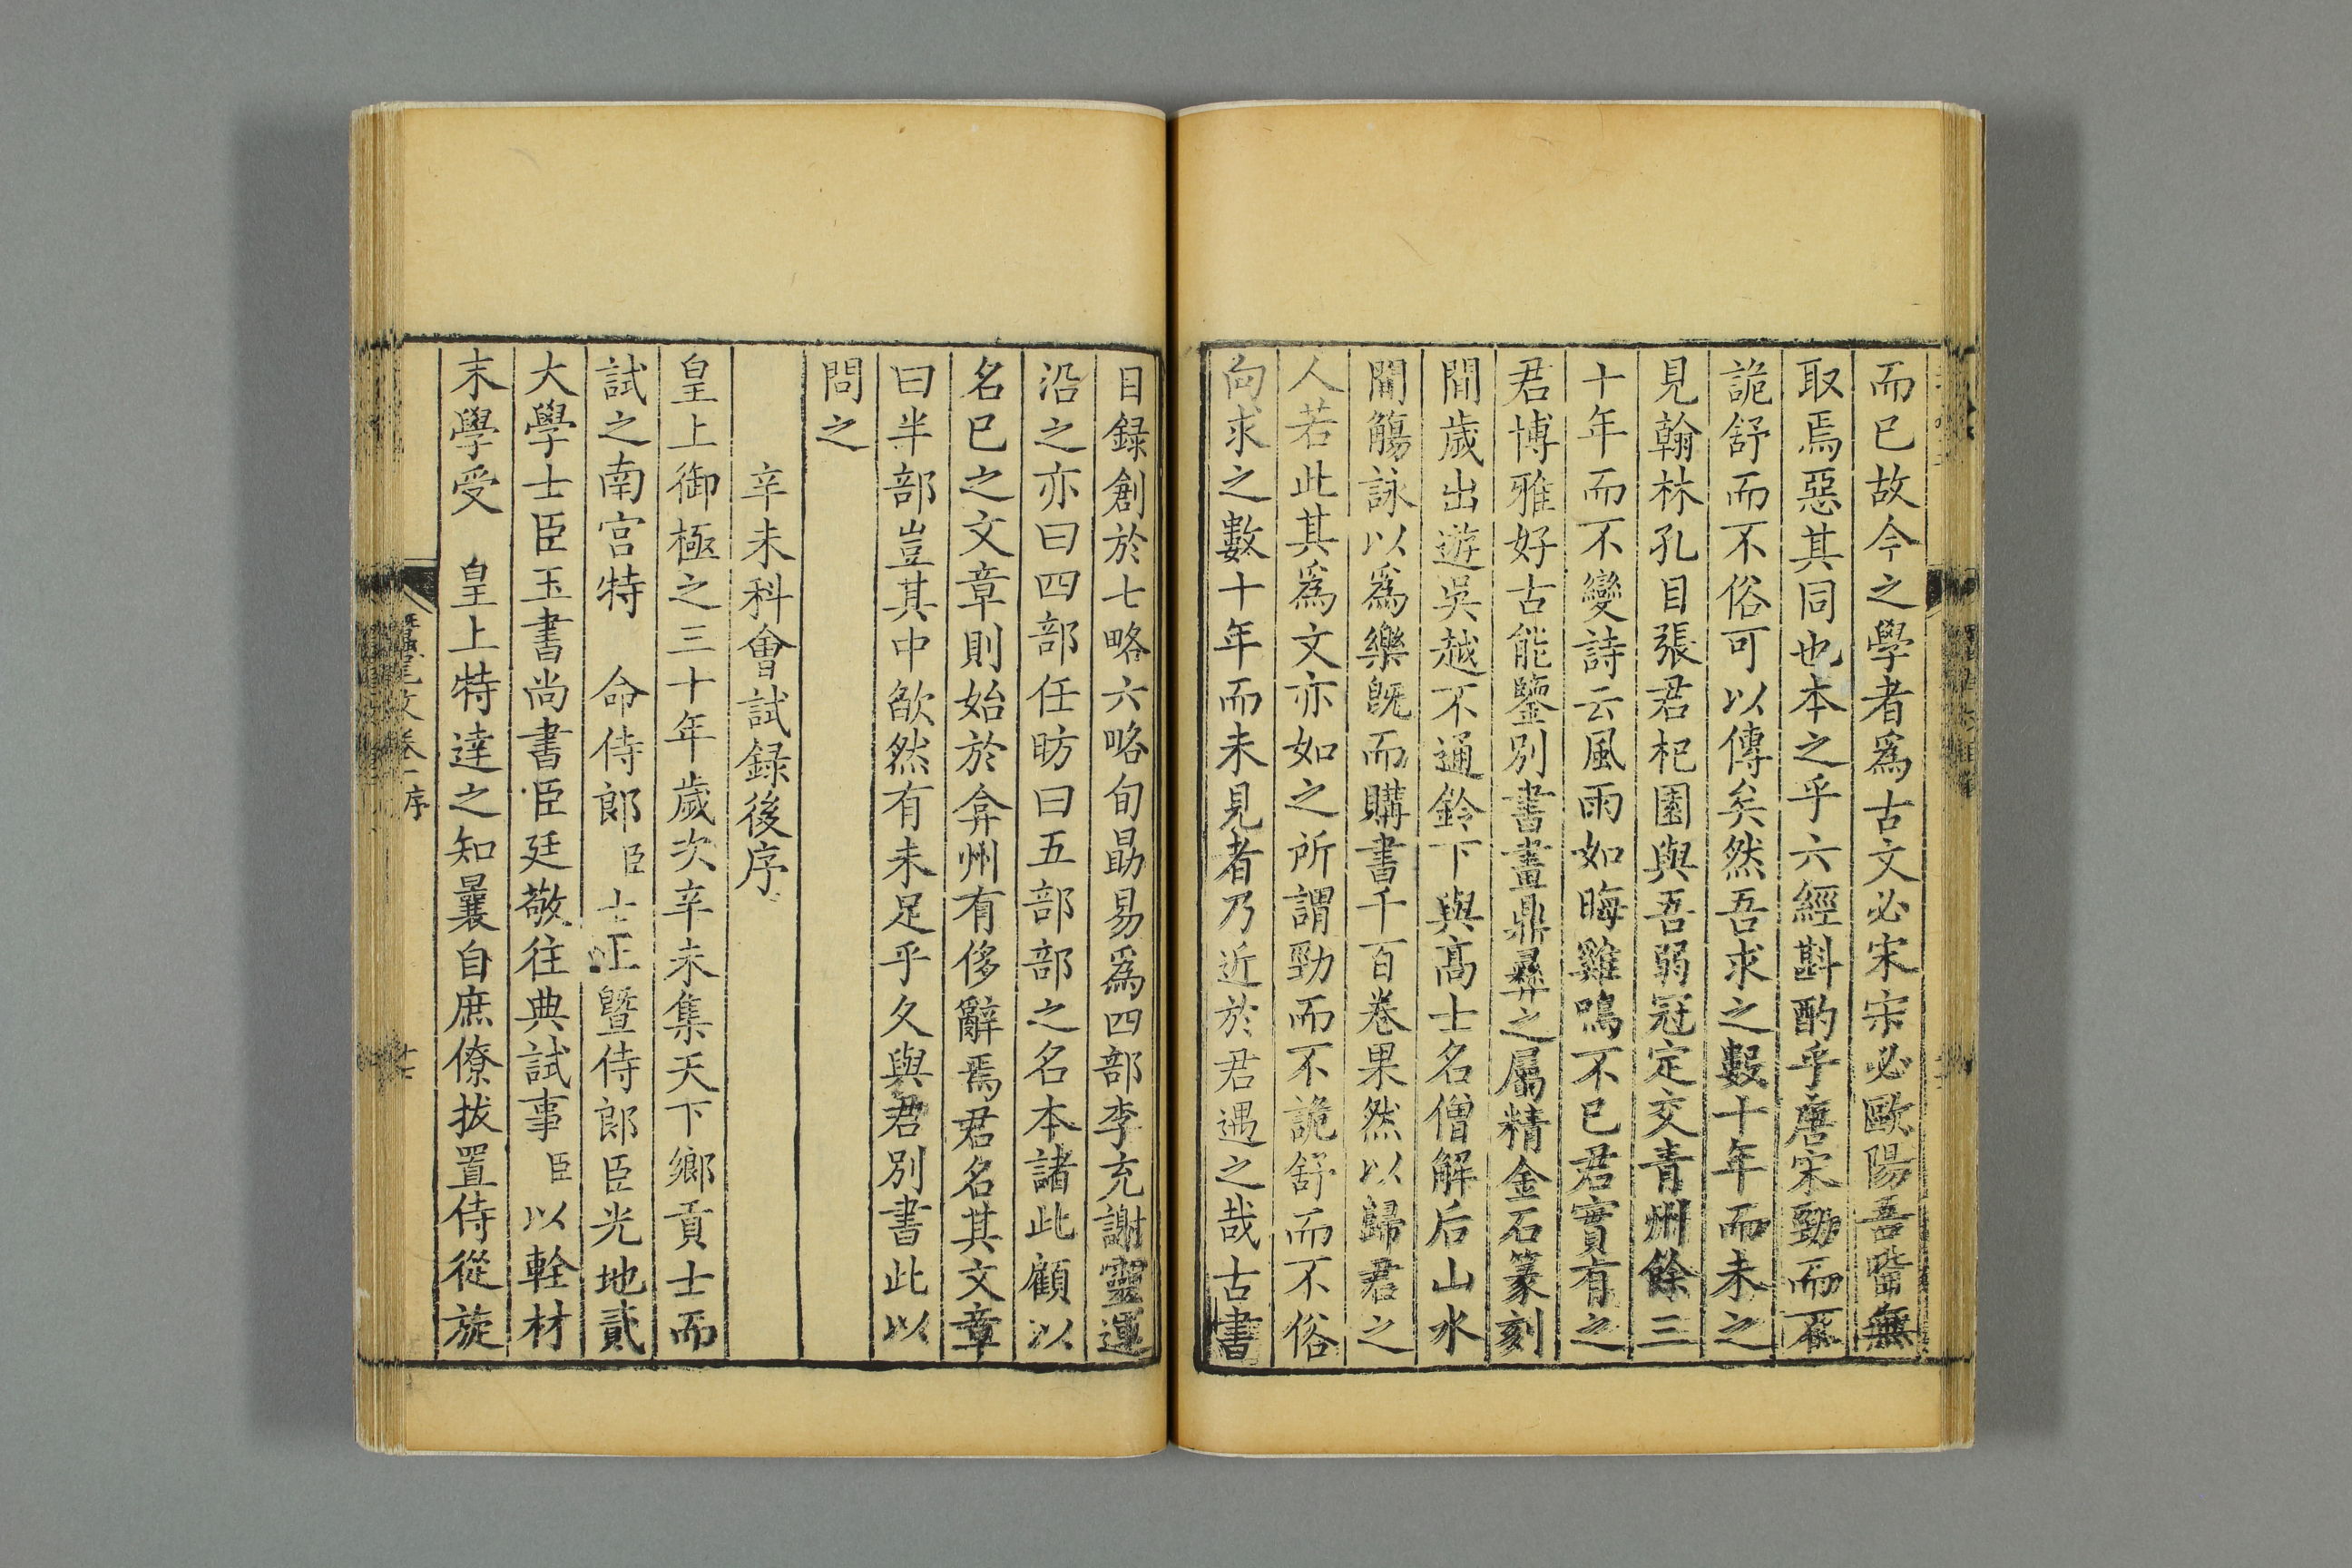 而已故今之學者爲古文必宋宋必歐陽吾嘗無
取焉惡其同也本之乎六經斟酌乎唐宋勁而不
詭舒而不俗可以傳矣然吾求之數十年而未之
見翰林孔目張君杞園與吾弱冠定交青州餘三
十年而不變詩云風雨如晦雞鳴不已君實有之
君博雅好古能鑒別書畫鼎彝之屬精金石篆刻
間歲出遊吳越不通鈴下與高士名僧解后山水
間觴詠以爲樂旣而購書千百卷果然以歸君之
人若此其爲文亦如之所謂勁而不詭舒而不俗
向求之數十年而未見者乃近於君遇之哉古書
目録創於七略六略旬勗易爲四部李充謝靈運
沿之亦曰四部任昉曰五部部之名本諸此顧以
名已之文章則始於弇州有侈辭焉君名其文章
曰半部豈其中欿然有未足乎久與君別書此以
問之
辛未科會試録後序
皇上御極之三十年歲次辛未集天下鄉貢士而
試之南宮特 命侍郎臣士正曁侍郎臣光地貳
大學士臣玉書尚書臣廷敬往典試事臣以輇材
末學受 皇上特達之知曩自庶僚拔置侍從旋
蠶尾文卷一序
十七